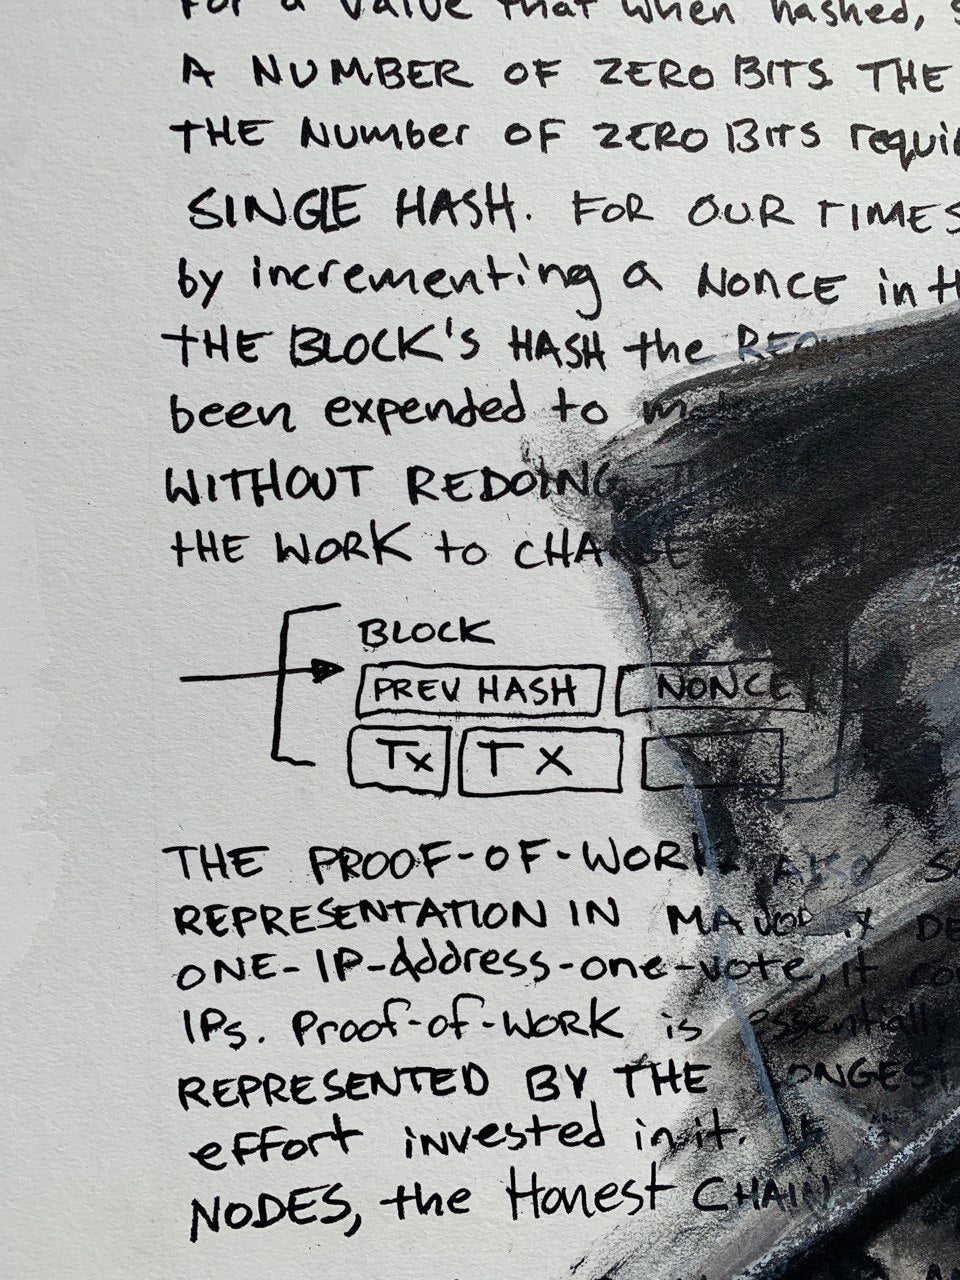 For a value that when hashed,
A NUMBER OF ZERO BITS. THE
THE NUMber OF ZERO BITS requi
SINGLE HASH. FOR OUR TIMES
by incrementing a NONCE in th
THE BLOCK'S HASH the REQU
been expended to m
WITHOUT REDOING
tHE WORK to CHANGE
BLOCK
PREV HASH NONCE
Tx TX
THE PROOF-OF-WORK ALSO
REPRESENTATION IN MAJORITY DE
ONE-IP-Address-one-vote, it co
IPs. Proof-of-WORK is essentially
REPRESENTED BY THE LONGEST
effort invested in it. If
NODES, the Honest CHAIN